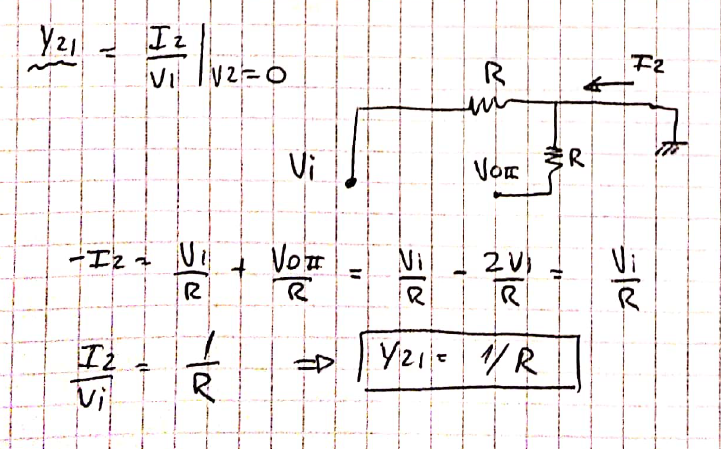 Y21 = I2/V1 | V2=0
R
I2
Vi
VoII
R
-I2 = V1/R + VoII/R = Vi/R - 2V1/R = Vi/R
I2/Vi = 1/R ⇒ Y21 = 1/R